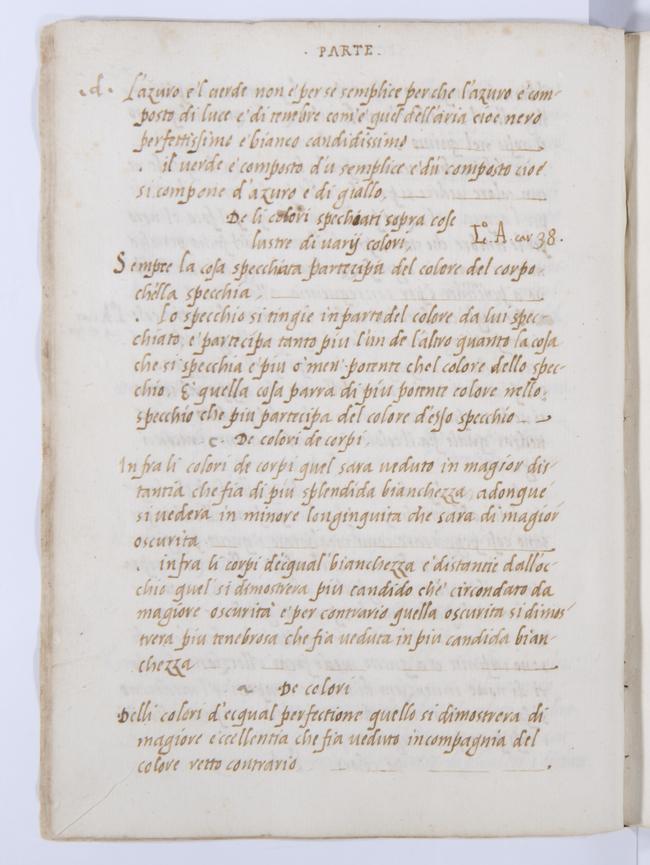 · PARTE ·
.d. L'azuro e'l verde non e per se semplice perche l'azuro e com-
posto di luce e di tenebre com'e quel dell'aria cioe nero
perfettissimo e bianco candidissimo
. il verde e composto d'u semplice e d'u composto cioe
si compone d'azuro e di giallo.
De li colori spechiati sopra cose
lustre di varij colori.
Lº. A car 38.
Sempre la cosa specchiata partecipa del colore del corpo
chella specchia.
Lo specchio si tingie in parte del colore da lui spec-
chiato, e partecipa tanto piu l'un de l'altro quanto la cosa
che si specchia e piu o' men' potente chel colore dello spec-
chio. E quella cosa parra di piu potente colore nello
specchio che piu partecipa del colore d'esso specchio
c. De colori de corpi.
Infra li colori de corpi quel sara veduto in magior dis-
tantia che fia di piu splendida bianchezza, adonque
si vedera in minore longinquita che sara di magior
oscurita
. infra li corpi d'ecqual bianchezza e distantie dall'oc-
chio quel si dimostrera piu candido che' circondato da
magiore oscurita e per contrario quella oscurita si dimos-
trera piu tenebrosa che fia veduta in piu candida bian-
chezza
De colori
Delli colori d'ecqual perfectione quello si dimostrera di
magiore eccellentia che fia veduto incompagnia del
colore retto contrario